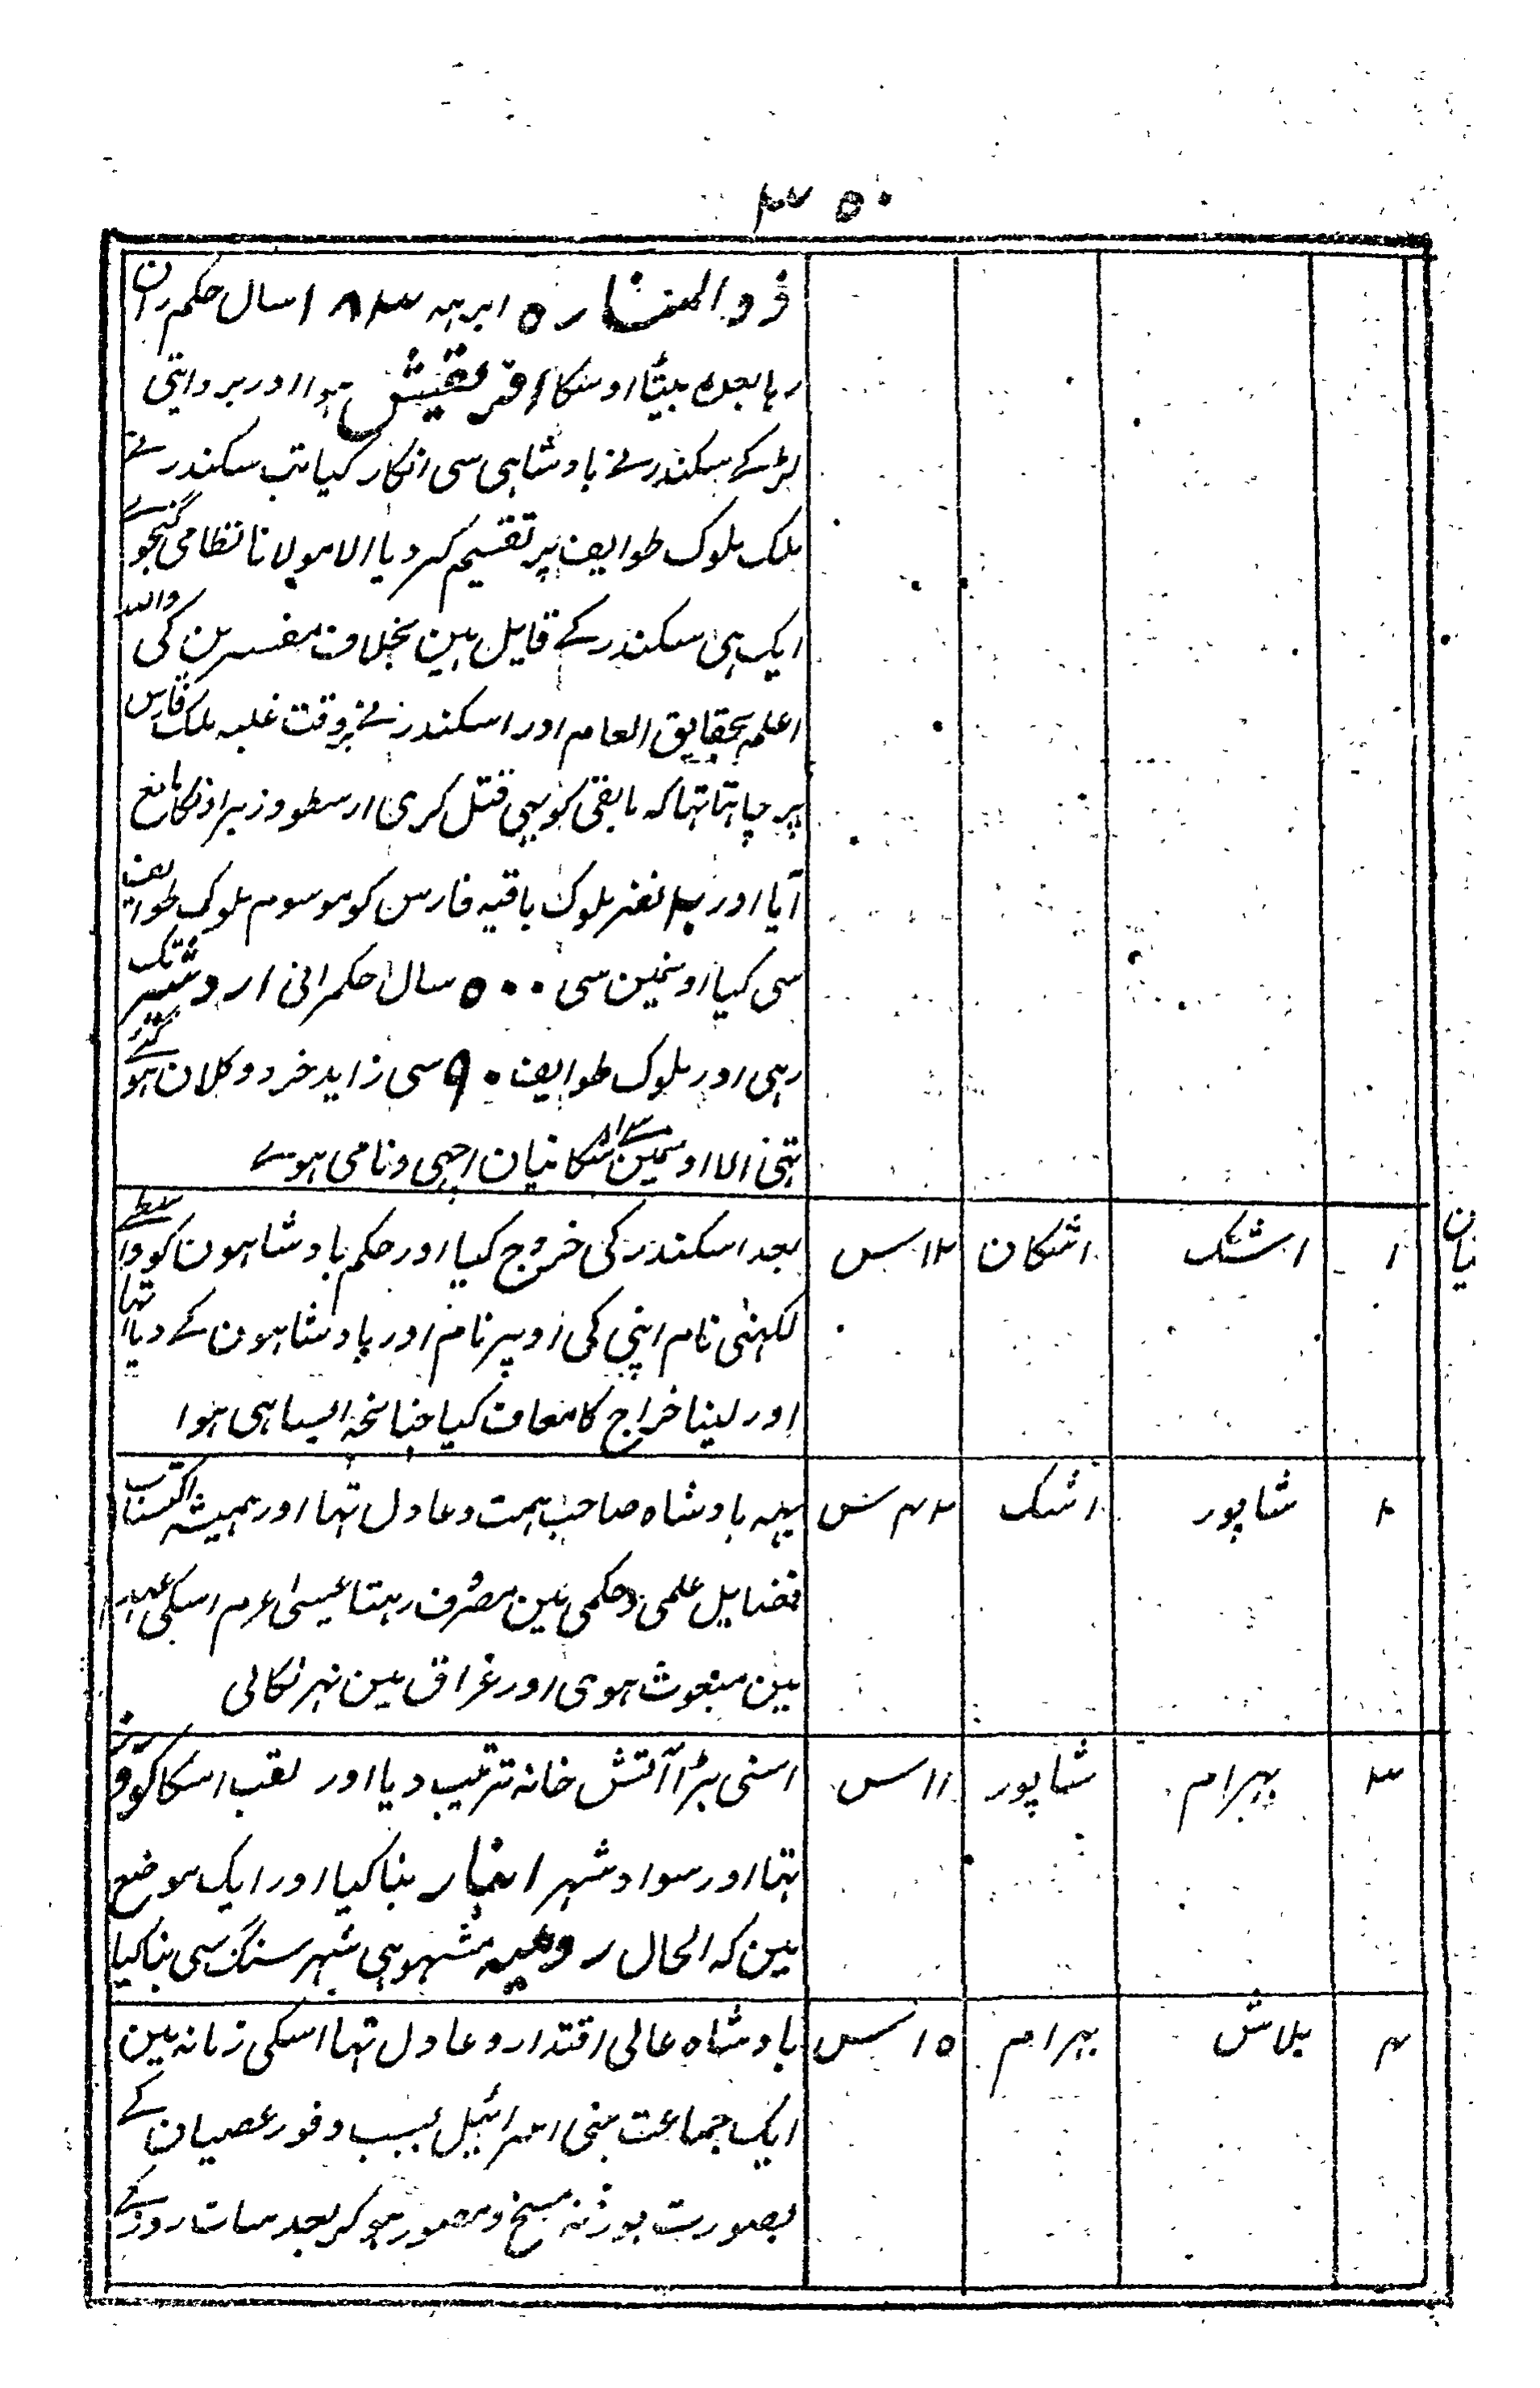 ۳۵۰
ذوالمنارہ ابرہہ ۱۸۳ سال حکمران
رہا بعدہ بیٹا اوسکا افریقیش ہوا اور بروایتی
لڑکے سکندر نے بادشاہی سی انکار کیا تب سکندر نے
ملک ملوک طوایف پر تقسیم کر دیا الا مولانا نظامی گنجوے
ایک ہی سکندر کے قایل ہین بخلاف مفسرین کی واللہ
اعلم بحقایق العام اور اسکندر نے بروقت غلبہ ملک فارس
پر چاہتا تہا کہ مابقی کو بہی قتل کری ارسطو وزیر اوسکا مانع
آیا اور نفر ملوک باقیہ فارس کو موسوم ملوک طوایف
سی کیا اونمین سی ۵۰۰ سال حکمرانی اردشیر تک
رہی اور ملوک طوایف ۹۰ سی زاید خرد و کلان ہو گذرے
تہی الا اوسمین سے اشکانیان اچہی و نامی ہوے
۱ اشک اشکان ۱۲س بعد اسکندر کی خروج کیا اور حکم بادشاہون کو واسطے
لکہنی نام اپنی کی اوپر نام اور پادشاہون کے دیا تہا
اور لینا خراج کا معاف کیا چنانچہ ایسا ہی ہوا
۲ شاپور اشک ۴۲س یہہ بادشاہ صاحب ہمت و عادل تہا اور ہمیشہ اکتساب
فضایل علمی و حکمی مین مصروف رہتا عیسیٰ عرم اسکی عہد
مین مبعوث ہوی اور عراق مین نہر نکالی
۳ بہرام شاپور ۱۱س اسنی بڑا آتش خانہ ترتیب دیا اور لقب اسکا گودرز
تہا اور سواد شہر انبار بنا کیا اور ایک موضع
مین کہ الحال رومیہ مشہور ہی شہر سنگ سی بنا کیا
۴ بلاش بہرام ۱۵س بادشاہ عالی اقتدار و عادل تہا اسکی زمانہ مین
ایک جماعت بنی اسرائیل بسبب وفور عصیان کے
بصورت بوزنہ مسخ و مصور ہو کر بعد سات روز کے